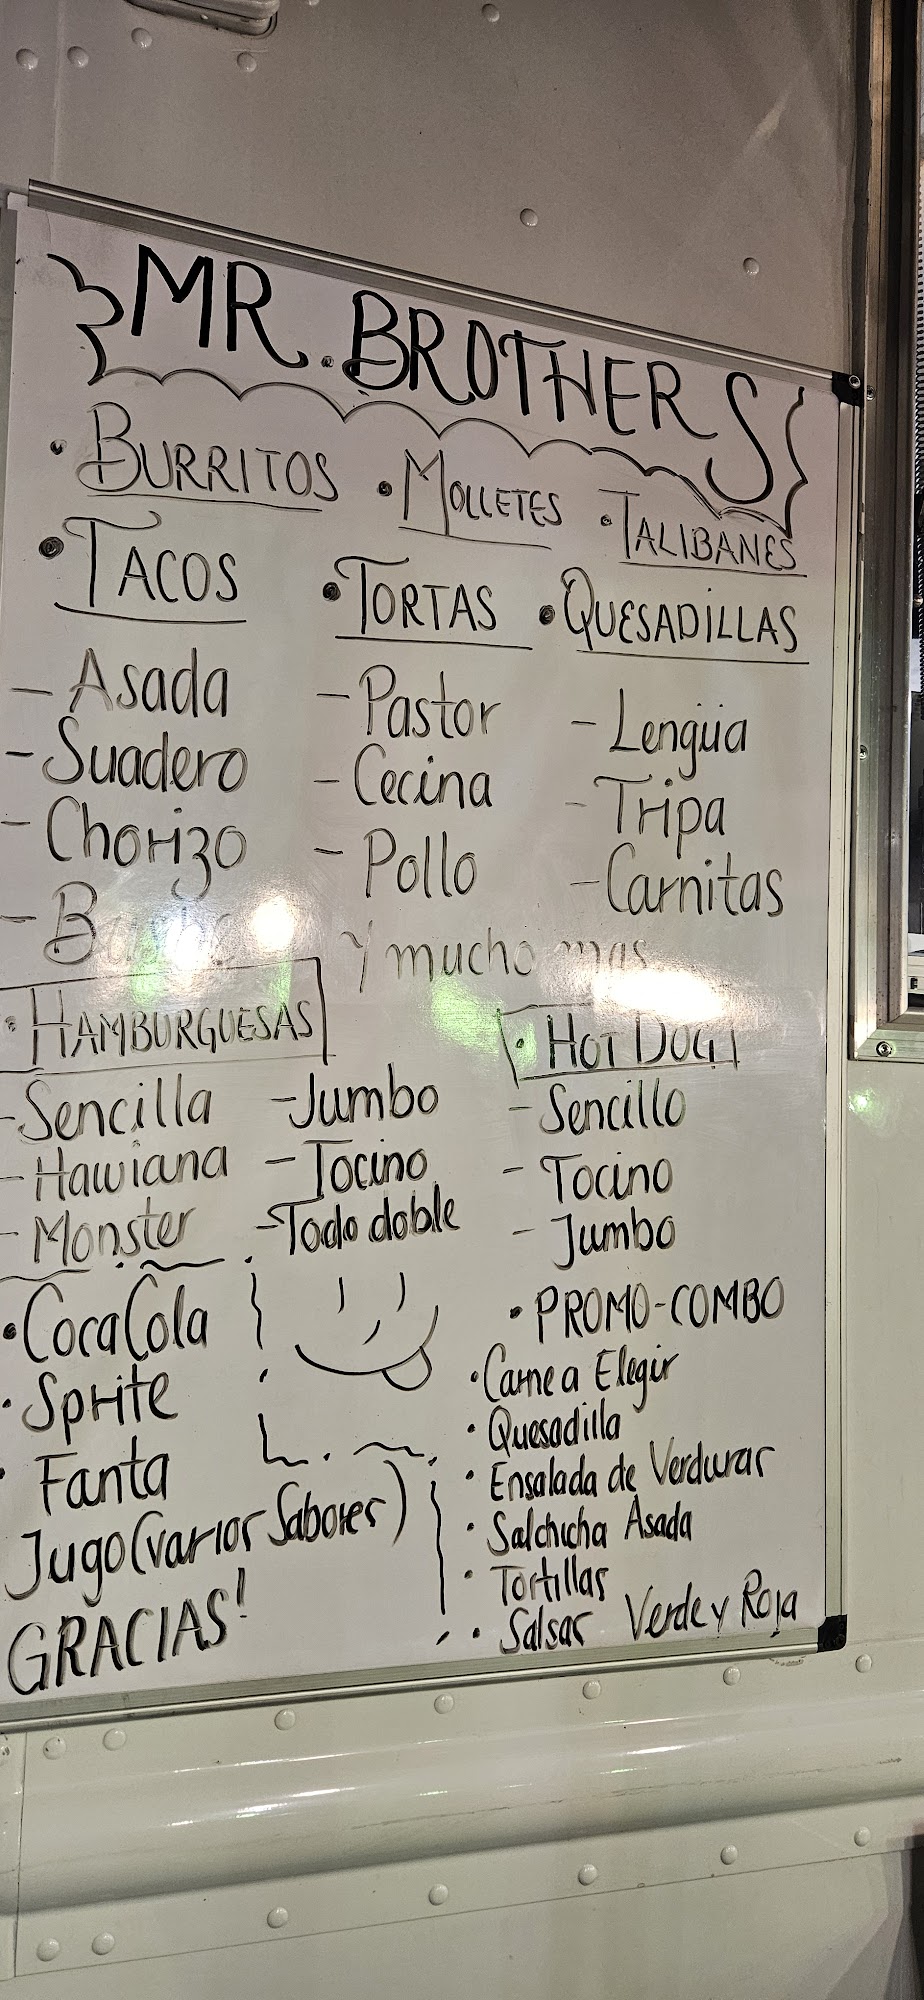 MR. BROTHERS
• BURRITOS • MOLLETES • TALIBANES
• TACOS • TORTAS • QUESADILLAS
- Asada - Pastor - Lengüa
- Suadero - Cecina - Tripa
- Chorizo - Pollo - Carnitas
Y mucho mas
• HAMBURGUESAS
- Sencilla - Jumbo
- Hawiana - Tocino
- Monster - Todo doble
• HOT DOG
- Sencillo
- Tocino
- Jumbo
• CocaCola
• Sprite
• Fanta
Jugo (varios Sabores)
GRACIAS!
• PROMO-COMBO
• Carne a Elegir
• Quesadilla
• Ensalada de Verduras
• Salchicha Asada
• Tortillas
• Salsas Verde y Roja